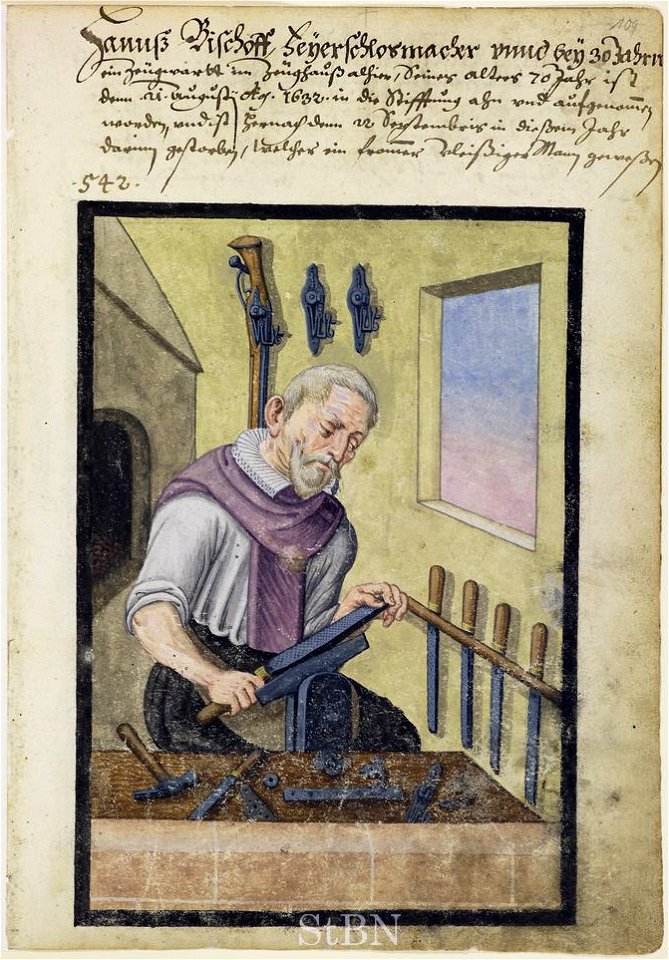 109
Hannß Bischoff feyerschlosmacher vnnd bey 30 Jahrn
ein Zeugwartt im Zeüghauß alhier, Seines alters 70 Jahr ist
denn 21 Augusti Aõ. 1632 in die Stifftung ahn vnd aufgenommen
worden, vnd ist Hernach denn 12 Septembris in dießem Jahr
darinn gestorben, welcher ein fromer vleißiger Mann geweßen
.542.
StBN